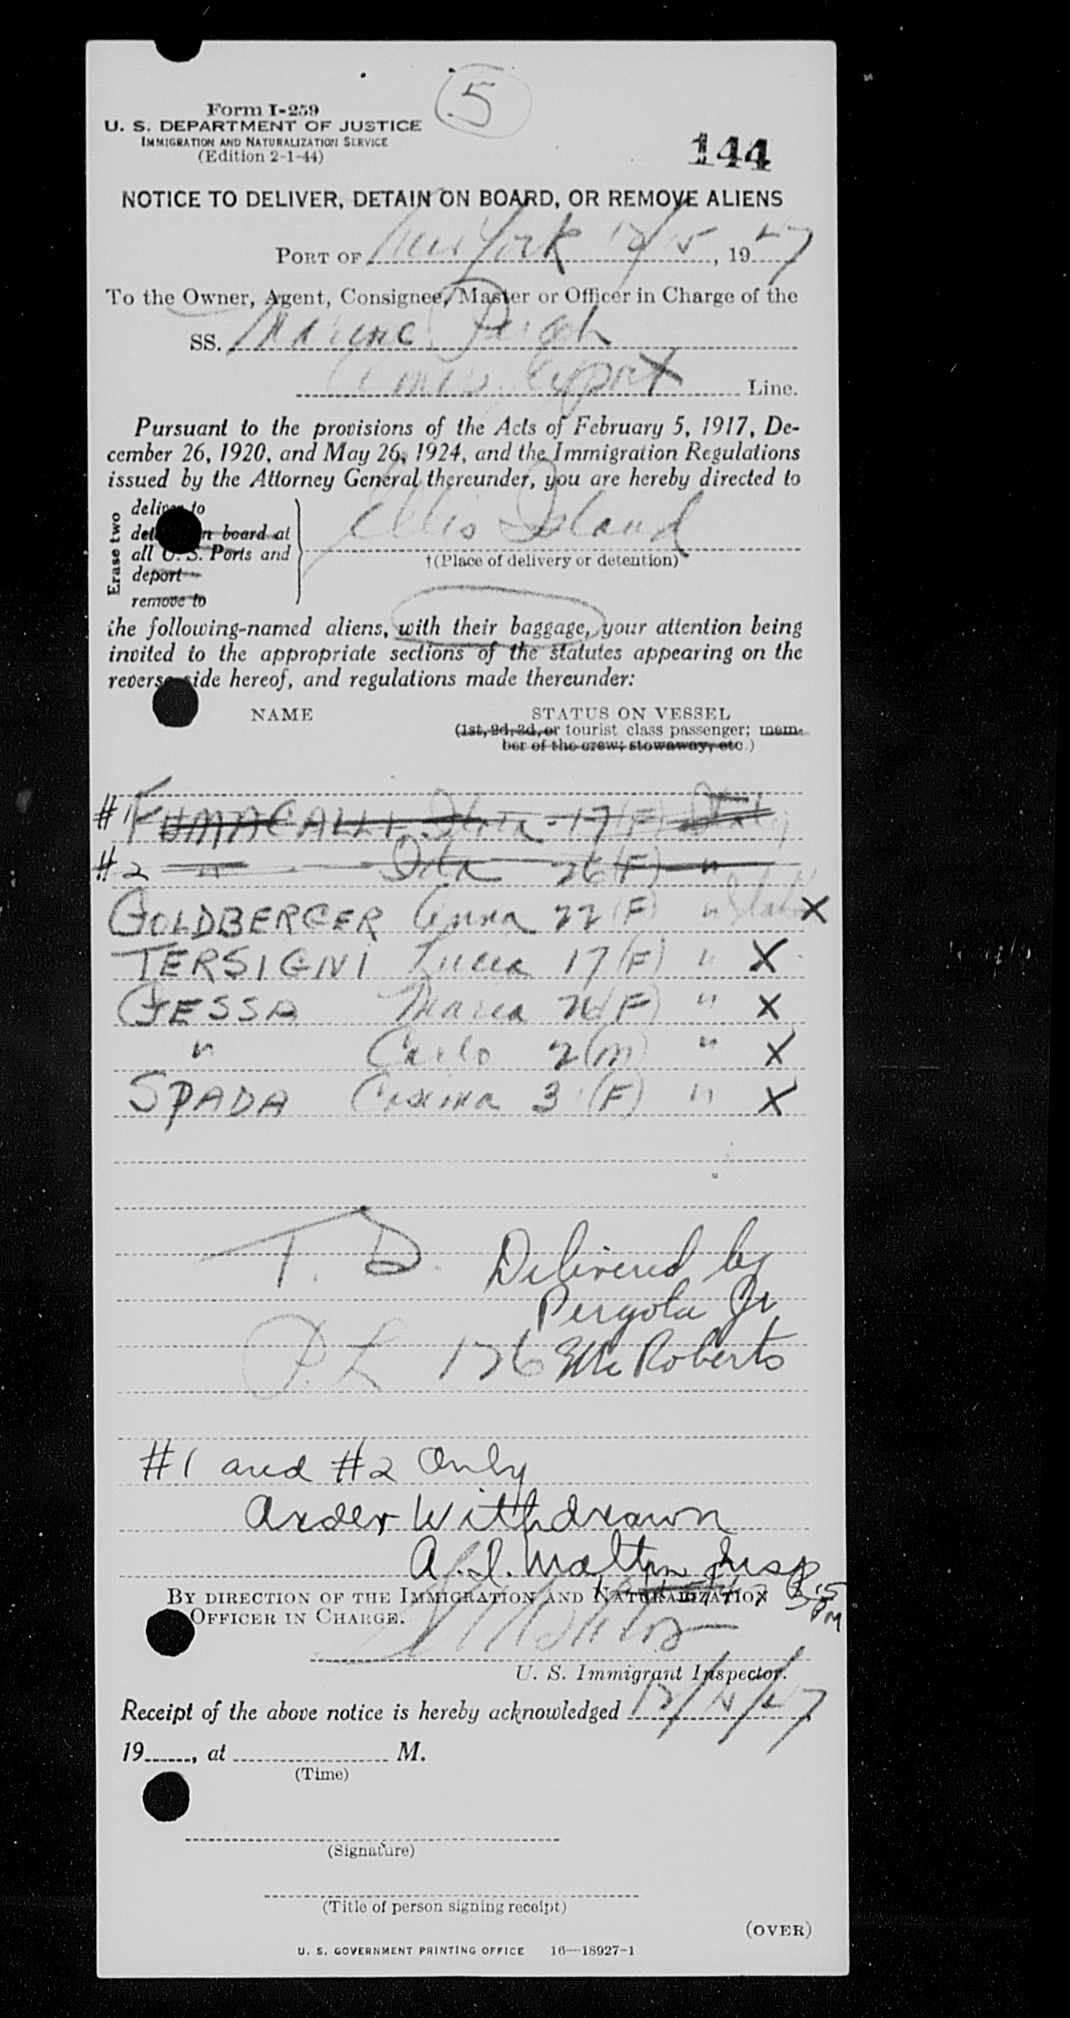 5
Form I-259
U. S. DEPARTMENT OF JUSTICE
IMMIGRATION AND NATURALIZATION SERVICE
(Edition 2-1-44)
144
NOTICE TO DELIVER, DETAIN ON BOARD, OR REMOVE ALIENS
PORT OF New York 12/15, 1947
To the Owner, Agent, Consignee, Master or Officer in Charge of the
SS. Marine Perch
Amer. Export Line.
Pursuant to the provisions of the Acts of February 5, 1917, De-
cember 26, 1920, and May 26, 1924, and the Immigration Regulations
issued by the Attorney General thereunder, you are hereby directed to
Erase two
deliver to
detain on board at
all U. S. Ports and
deport
remove to
Ellis Island
†(Place of delivery or detention)
the following-named aliens, with their baggage, your attention being
invited to the appropriate sections of the statutes appearing on the
reverse side hereof, and regulations made thereunder:
NAME STATUS ON VESSEL
(1st, 2d, 3d, or tourist class passenger; mem-
ber of the crew; stowaway, etc.)
#1 FUMAGALLI 17 (F) Italy
#2 " Ida 26 (F) "
GOLDBERGER Anna 22 (F) " X
TERSIGNI Lucia 17 (F) " X
GESSA Maria 26 (F) " X
" Carlo 2 (m) " X
SPADA 3 (F) " X
T. D. Delivered by
Pergola Jr
P. L 126 Roberts
#1 and #2 Only
Order Withdrawn
A. I. Insp
BY DIRECTION OF THE IMMIGRATION AND NATURALIZATION
OFFICER IN CHARGE.
PM
U. S. Immigrant Inspector.
Receipt of the above notice is hereby acknowledged 12/15/47,
19......, at .................... M.
(Time)
(Signature)
(Title of person signing receipt)
(OVER)
U. S. GOVERNMENT PRINTING OFFICE 16—18927-1